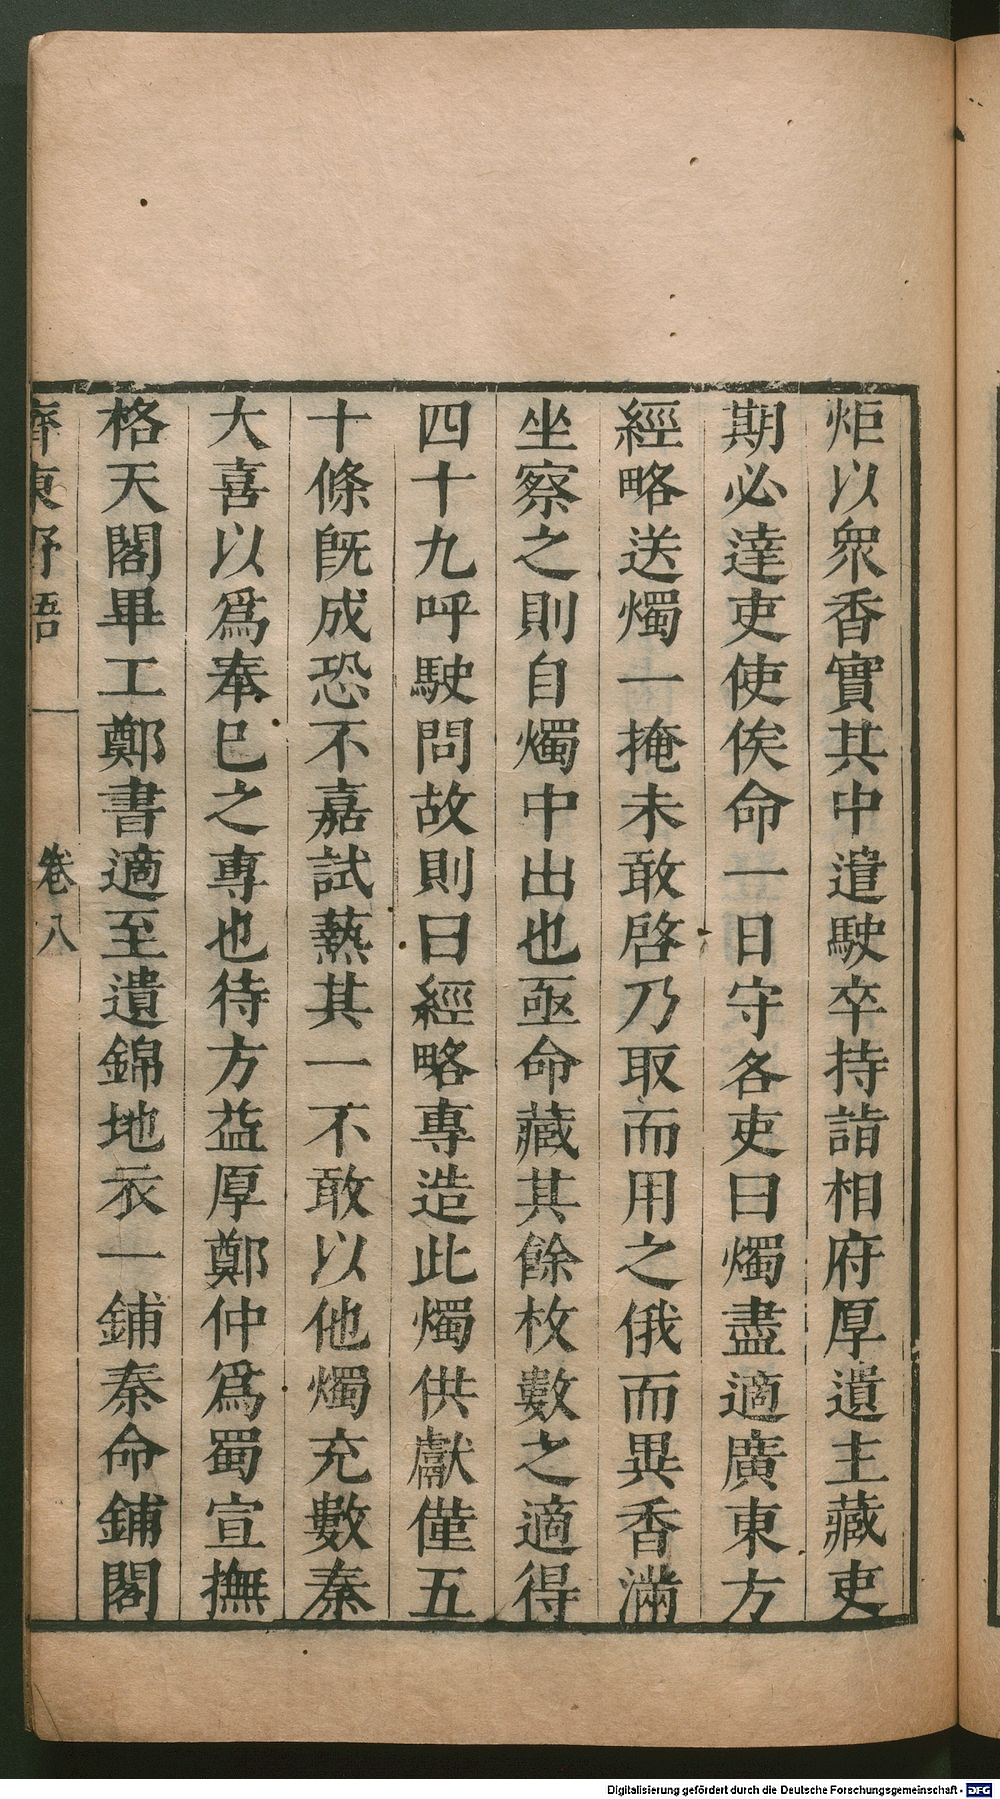 炬以衆香實其中遣駛卒持詣相府厚遺主藏吏
期必達吏使俟命一日守各吏曰燭盡適廣東方
經略送燭一掩未敢啓乃取而用之俄而異香滿
坐察之則自燭中出也亟命藏其餘枚數之適得
四十九呼駛問故則曰經略專造此燭供獻僅五
十條既成恐不嘉試爇其一不敢以他燭充數秦
大喜以爲奉巳之專也待方益厚鄭仲爲蜀宣撫
格天閣畢工鄭書適至遺錦地衣一鋪秦命鋪閣
齊東野語 卷八
Digitalisierung gefördert durch die Deutsche Forschungsgemeinschaft - DFG